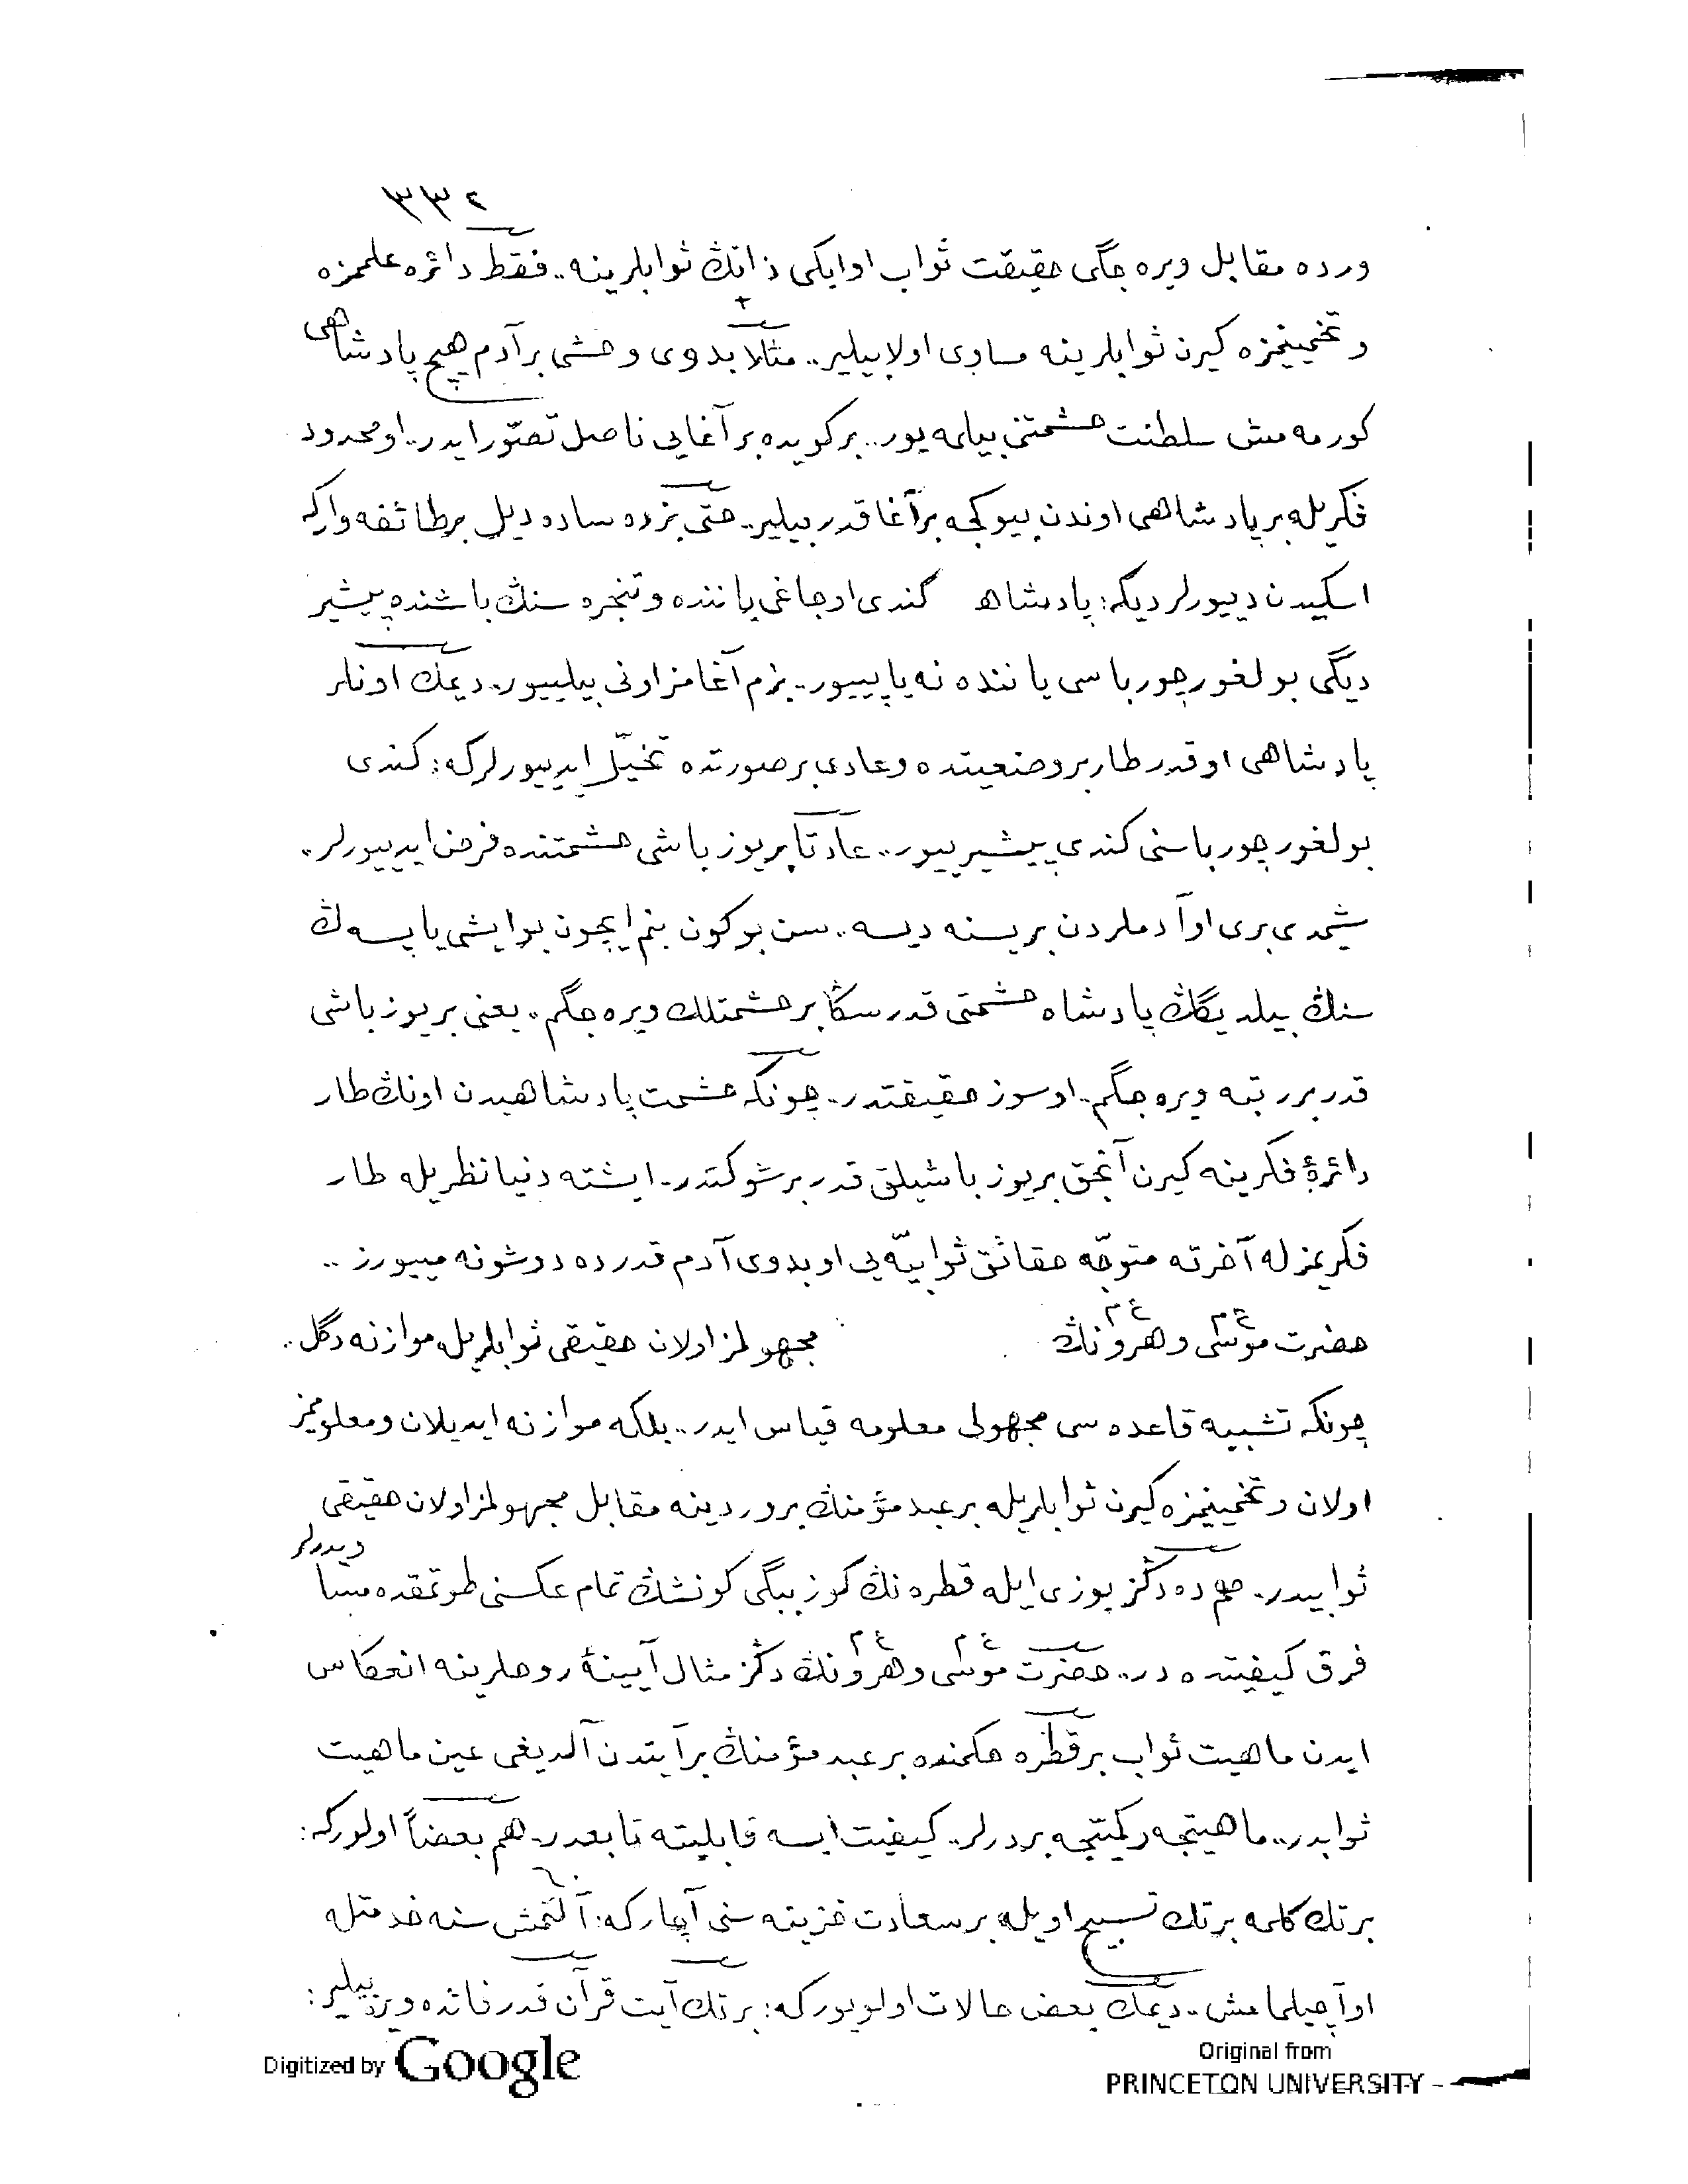 ٣٣٢
ورده مقابل ويره جگى حقيقت ثواب اوايكى ذاتڭ ثوابلرينه.. فقط دائره علممزه
و تخمينمزه كيرن ثوابلرينه مساوى اولابيلير.. مثلا بدوى وحشى برآدم هيچ پادشاهى
كورمه مش سلطنت حشمتنى بيلمه يور.. بركويده برآغايى ناصل تصوّر ايدر.. او محدود
فكريله برپادشاهى اوندن بيوكجه برآغا قدر بيلير.. حتى بزده ساده ديل برطائفه واركه
اسكيدن دييورلرديكه: پادشاه كندى اوجاغى ياننده و تنجره سنڭ باشنده پيشير
ديگى بولغور چورباسى ياننده نه ياپييور.. بزم آغامز اونى بيلييور.. ديمك اونلر
پادشاهى اوقدر طار بروضعيتده وعادى برصورتده تخيّل ايدييورلركه: كندى
بولغور چورباسنى كندى پيشيرييور.. عادتا بريوز باشى حشمتنده فرض ايدييورلر.
شيمدى برى اوآدملردن بريسنه ديسه.. سن بوكون بنم ايچون بوايشى ياپسه ڭ
سنڭ بيلديگڭ پادشاه حشمتى قدر سڭا برحشمتلك ويره جگم. يعنى بريوز باشى
قدر بررتبه ويره جگم.. اوسوز حقيقتدر.. چونكه حشمت پادشاهيدن اونڭ طار
دائرهٔ فكرينه كيرن آنجق بريوز باشيلق قدر برشوكتدر.. ايشته دنيا نظريله طار
فكريمزله آخرته متوجّه حقائق ثوابيّه يى اوبدوى آدم قدرده دوشونه مييورز..
حضرت موسٰى ع م وهرونڭ ع م مجهولمز اولان حقيقى ثوابلريله موازنه دگل..
چونكه تشبيه قاعده سى مجهولى معلومه قياس ايدر.. بلكه موازنه ايديلان ومعلوممز
اولان و تخمينمزه كيرن ثوابلريله برعبد مؤمنڭ بروردينه مقابل مجهولمز اولان حقيقى
ثوابيدر.. هم ده دڭز يوزى ايله قطره نڭ كوز ببگى كونشڭ تمام عكسنى طوتمقده مساويدرلر
فرق كيفيتده در.. حضرت موسٰى ع م وهرونڭ ع م دڭز مثال آيينهٔ روحلرينه انعكاس
ايدن ماهيت ثواب برقطره حكمنده برعبد مؤمنڭ برآيتدن آلديغى عين ماهيت
ثوابدر.. ماهيتجه و كميتجه بردرلر.. كيفيت ايسه قابليته تابعدر.. هم بعضاً اولوركه:
برتك كلمه برتك تسبيح اويله برسعادت خزينه سنى آچاركه: آلتمش سنه خدمتله
اوآچيلمامش.. ديمك بعض حالات اولويوركه: برتك آيت قرآن قدر فائده ويره بيلير:
Digitized by Google
Original from
PRINCETON UNIVERSITY